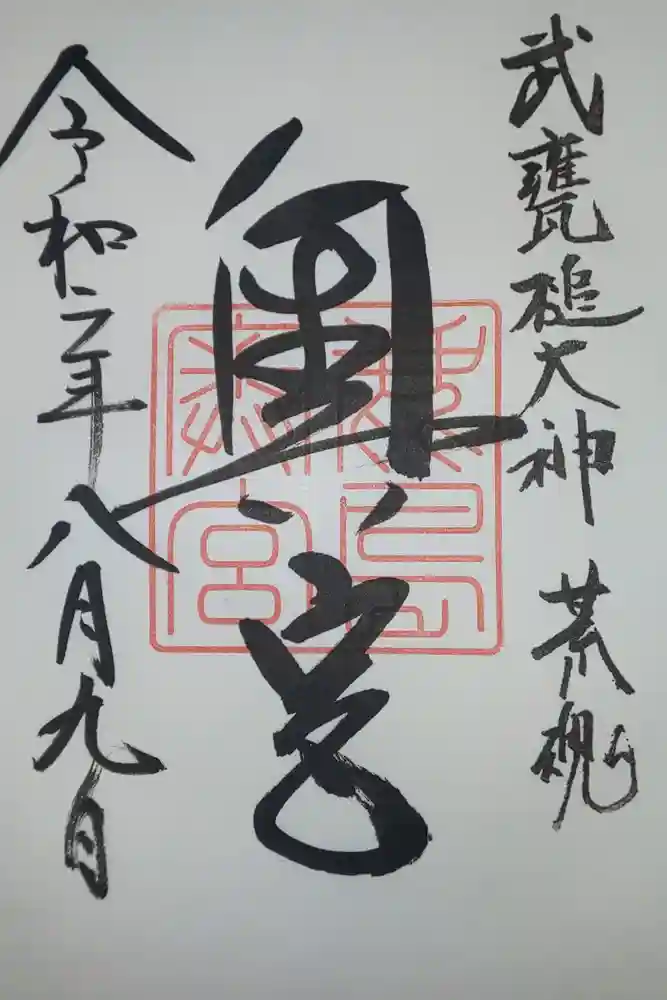 武甕槌大神 荒魂
奥宮
令和二年八月九日